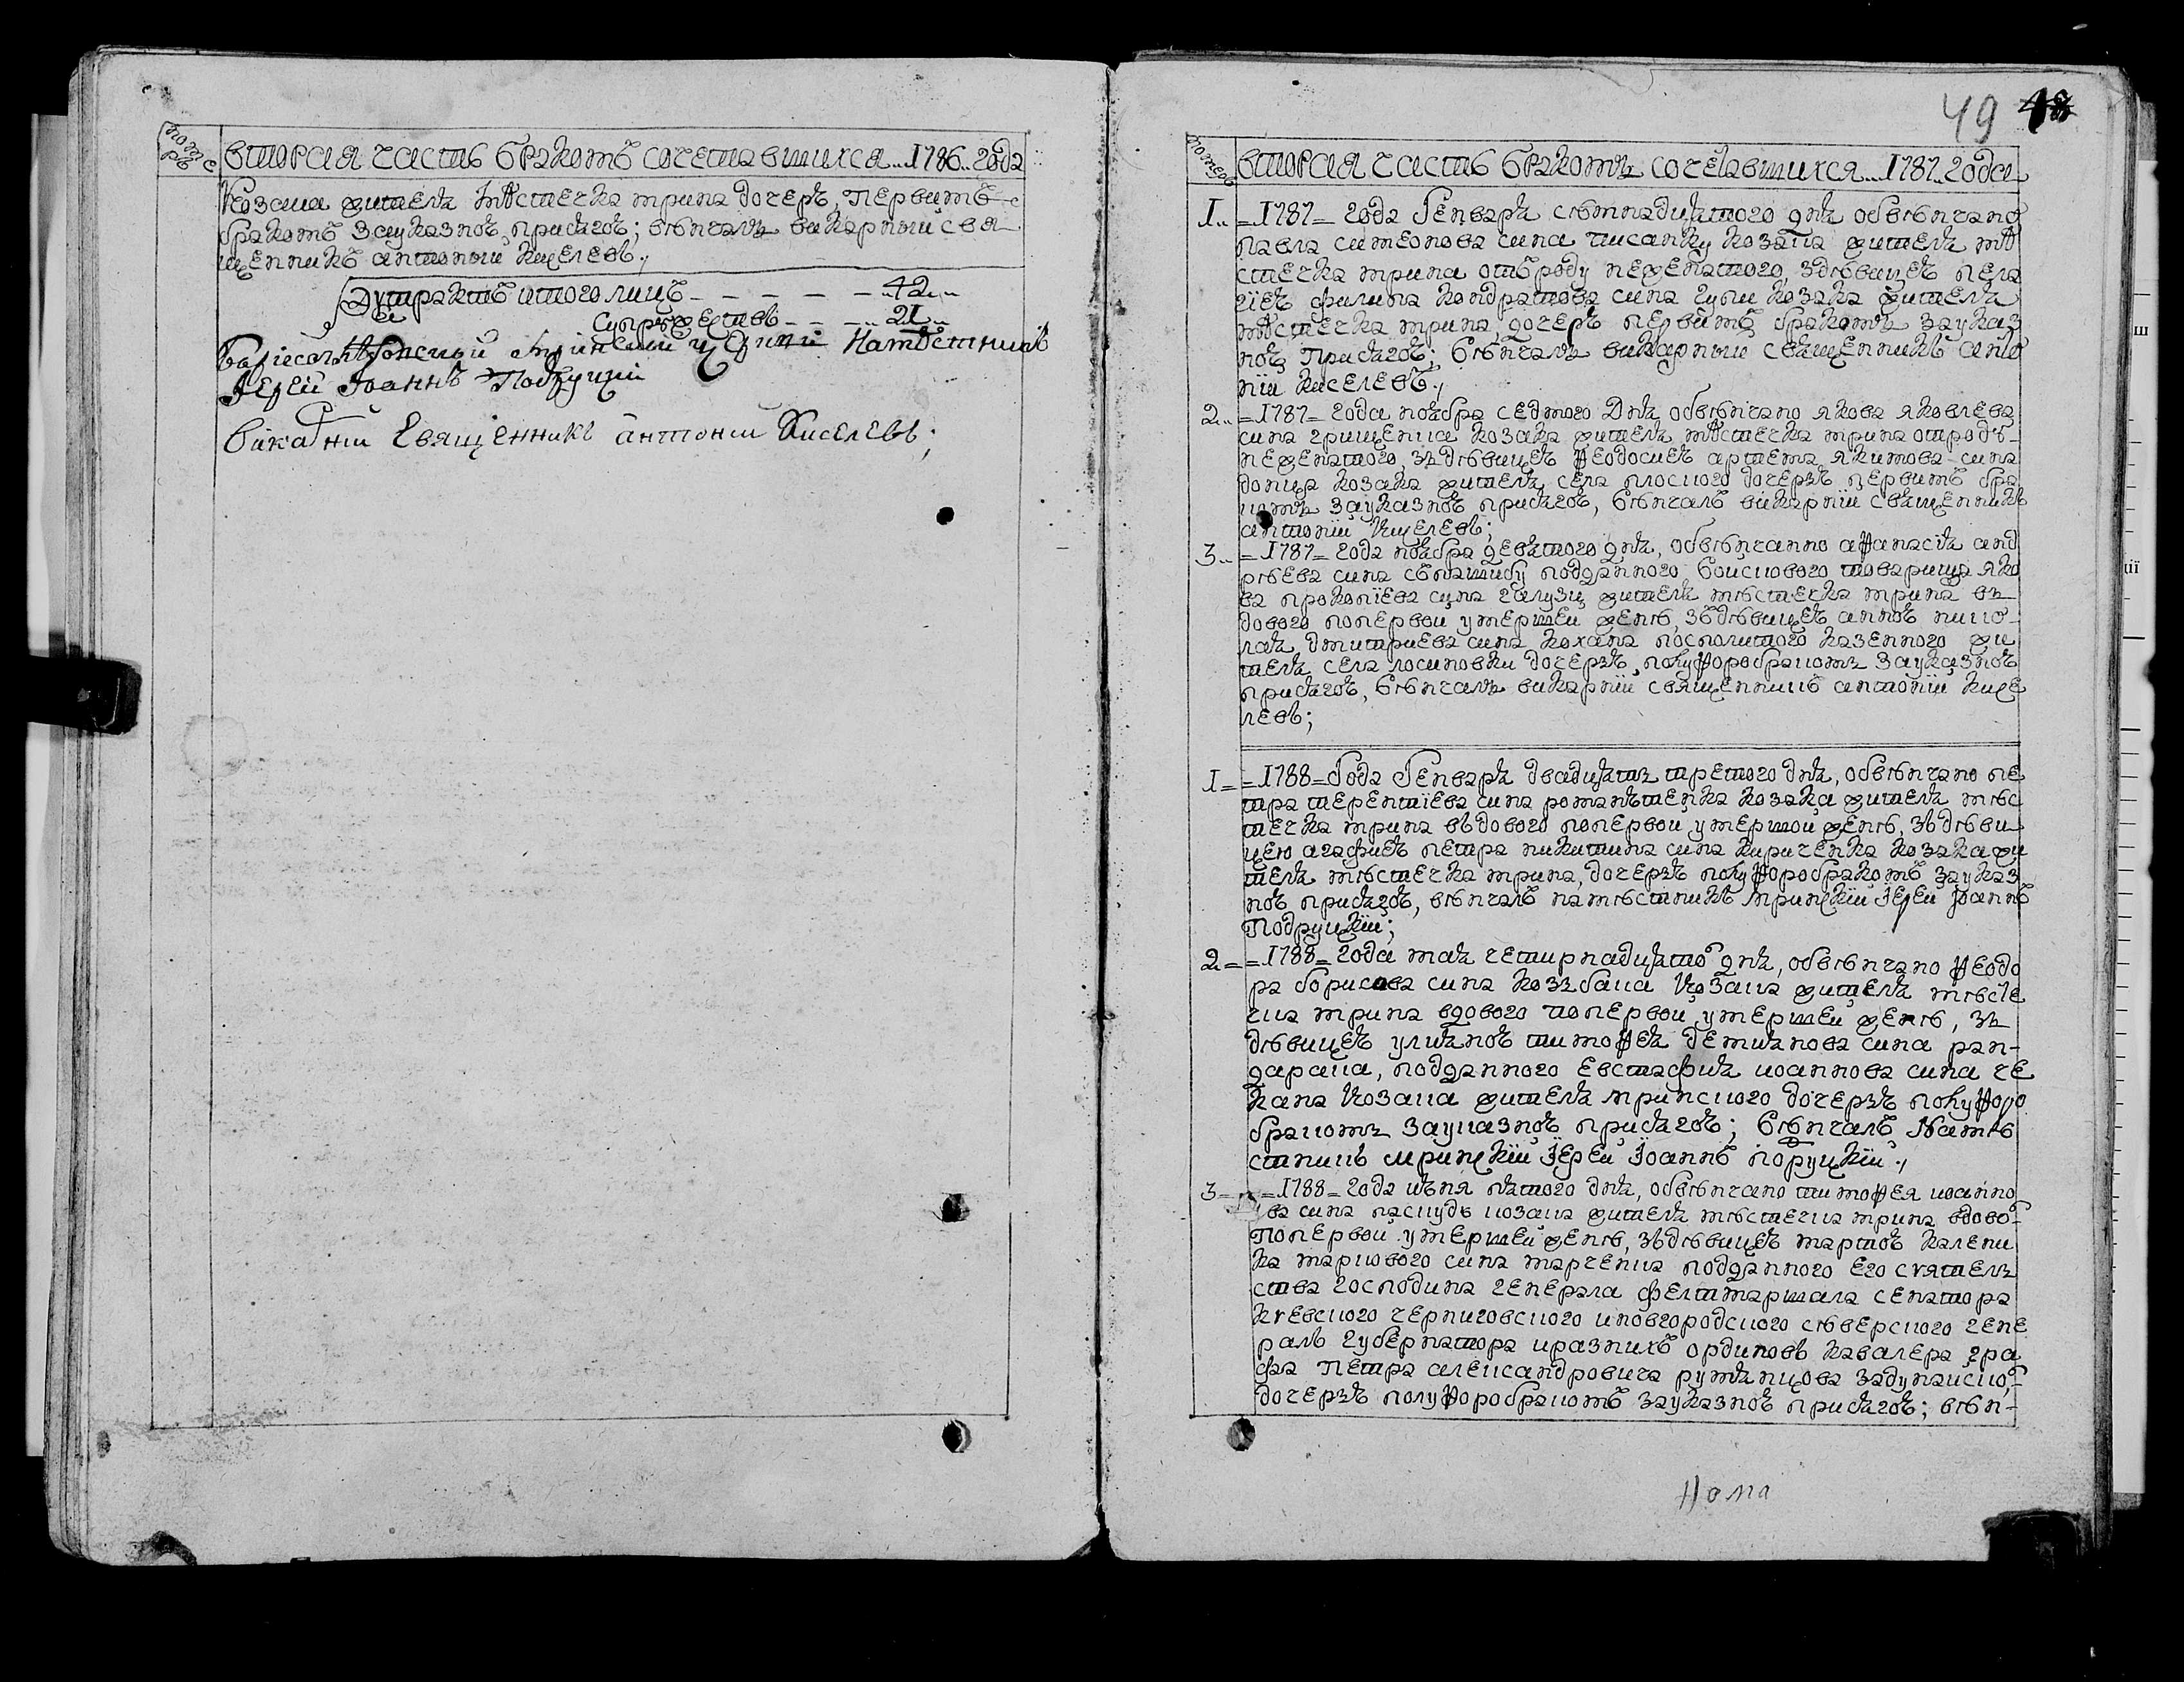 номеръ
вторая часть бракомъ сочетавшихся .. 1786 .. года
Козака жителя мѣстечка мрина дочеръ, первимъ
бракомъ зауказноъ присягоъ; вѣнчалъ викарный свя
щенникъ антоный киселевъ ,
Эѯтрактъ итого лицъ - - - - - - .. 42 ..
Супружествъ - - - .. 21 ..
Намѣстникъ
Іерей Іоаннъ Подруцкій
Викарній Священникъ антоній Киселевъ ;
49
номеръ
вторая часть бракомъ сочетавшихся ... 1787 .. года
1 .. = 1787 = года Генваря сѣмнадцятого дня обвѣнчано
павла симеонова сина писанку козака жителя мѣ
стечка мрина отъ роду неженатого, здѣвицеъ пела
гіеъ филипа кондратова сина гули козака жителя
мѣстечка мрина дочеръ первимъ бракомъ зауказ
ноъ присягоъ; вѣнчалъ викарныи священникъ анто
ній киселевъ ,
2 .. = 1787 = года ноября седмого дня обвѣнчано якова яковлева
сина грищенка козака жителя мѣстечка мрина отроду
неженатого, зъ дѣвицеъ Ѳеодосиеъ артема якимова сина
донца козака жителя села плоского дочерзъ первимъ бра
комъ зауказноъ присягоъ, вѣнчалъ викарній священникъ
антоній киселевъ ;
3 .. = 1787 = года ноября девятого дня, обвѣнчанно аѲанасія анд
рѣева сина подданного воискового товарища яко
ва прокопіева сина галузи жителя мѣстечка мрина въ
дового попервои умершеи женѣ, зъ дѣвицеъ анноъ нико
лая дмитриева сина кохана посполитого казенного жи
теля села лосиновки дочерзъ, полуѲоробракомъ зауказноъ
присягоъ, вѣнчалъ викарній священникъ антоній кисе
левъ ;
1 = = 1788 = Года Генваря двадцять третого дня, обвѣнчано пе
тра терентіева сина романътенка козака жителя мѣс
течка мрина въдового попервои умершои женѣ, зъ дѣви
цею агафиеъ петра никитина сина кириченка козака жи
теля мѣстечка мрина, дочерзъ полуѲоробракомъ зауказ
ноъ присягоъ, вѣнчалъ намѣстникъ мринскій Іерей Іоаннъ
Подруцкій ;
2 = = 1788 = года мая четирнадцято дня, обвѣнчано Ѳеодо
ра борисова сина козъбана козака жителя мѣсте
чка мрина вдового попервои умершеи женѣ, зъ
дѣвицеъ уляноъ тимоѲея демянова сина ран-
дарака, подданного евстафия иоаннова сина че
кана козака жителя мринского дочерзъ полуѲоро
бракомъ зауказноъ присягоъ; вѣнчалъ Намѣ
стникъ мринскій Іерей Іоаннъ подруцкій ,
3 = = 1788 = года июня пятого дня, обвѣнчано тимоѲея иоанно
ва сина паскудъ козака жителя мѣстечка мрина вдово
попервои умершеи женѣ, зъ дѣвицеъ марфоъ калени
ка маркового сина марченка подданного его сіятель
ства господина генерала фелтмаршала сенатора
кіевского черниговского иновгородского сѣверского гене
ралъ губернатора иразнихъ ординовъ кавалера гра
фа петра александровича румянцова задунаиско
дочерзъ полуѲоробракомъ зауказноъ присягоъ; вѣн-